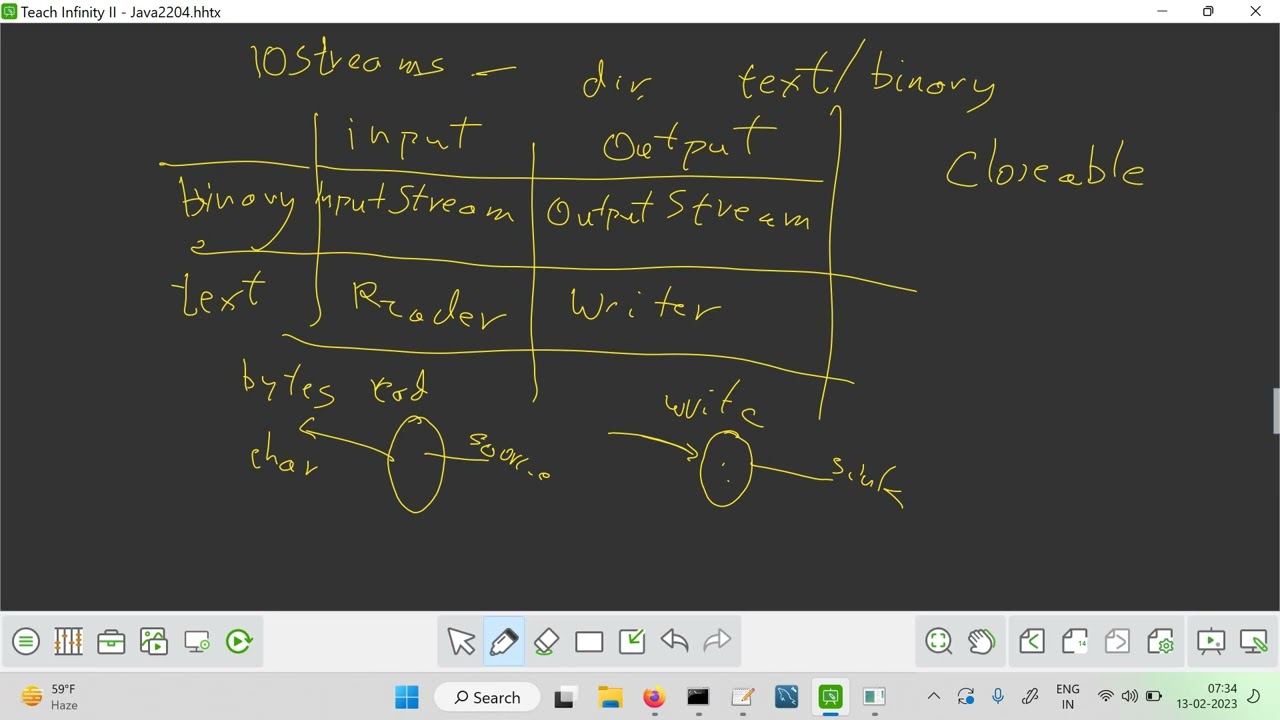 Teach Infinity II - Java2204.hhtx
IOStreams - dir, text/binary
input Output
Closeable
binary InputStream OutputStream
text Reader Writer
bytes read write
char source sink
14
59°F
Haze
Search
ENG
IN
07:34
13-02-2023